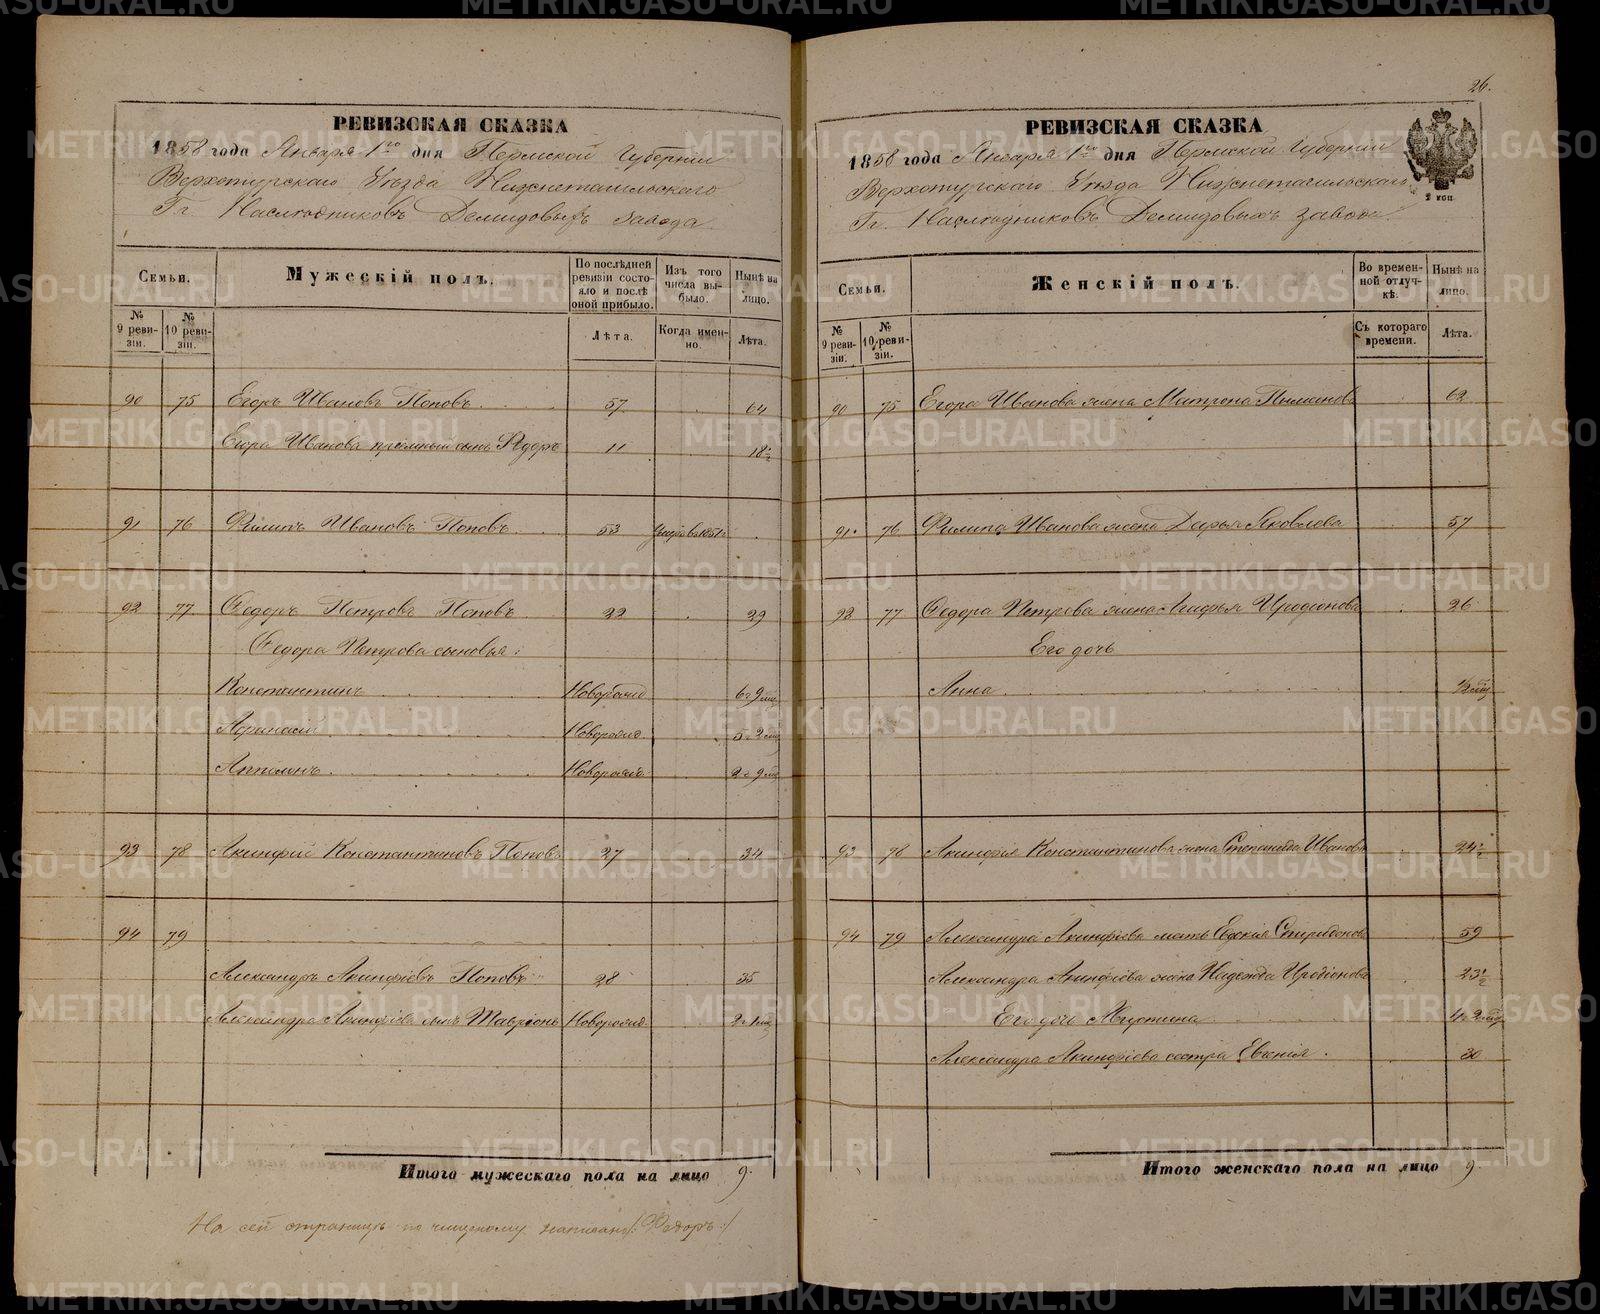 26.
РЕВИЗСКАЯ СКАЗКА
1858 года Января 1го дня Пермской Губернии
Верхотурского Уѣзда Нижнетагильскаго
Гг. Наслѣдниковъ Демидовыхъ завода
Семьи.
Мужескій полъ.
По послѣдней ревизіи состояло и послѣ оной прибыло.
Изъ того числа выбыло.
Нынѣ на лицо.
№ 9 ревизіи.
№ 10 ревизіи.
Лѣта.
Когда именно.
Лѣта.
90 75 Егоръ Ивановъ Поповъ 57 64
Егора Иванова пріемный сынъ Ѳедоръ 11 18½
91 76 Филипъ Ивановъ Поповъ 53 Умеръ въ 1851 г.
92 77 Ѳедоръ Петровъ Поповъ 22 29
Ѳедора Петрова сыновья:
Константинъ Новорожд. 6 г 9 мѣ
Афанасій Новорожд. 5 г 2 мѣ
Новорожд. 2 г 9 мѣ
93 78 Акинфій Константиновъ Поповъ 27 34
94 79
Александръ Акинфіевъ Поповъ 28 35
Александра Акинфіева сынъ Новорожд. 2 г 1 мѣ
Итого мужескаго пола на лицо 9.
На сей страницѣ по чищеному написано /: Ѳедоръ :/
РЕВИЗСКАЯ СКАЗКА
1858 года Января 1го дня Пермской Губерніи
Верхотурскаго Уѣзда Нижнетагильскаго
Гг. Наслѣдниковъ Демидовыхъ завода
2 коп.
Семьи.
Женскій полъ.
Во временной отлучкѣ.
Нынѣ на лицо.
№ 9 ревизіи.
№ 10 ревизіи.
Съ котораго времени.
Лѣта.
90 75 Егора Иванова жена Матрона 62
91 76 Филипа Иванова жена Дарья Яковлева 57
92 77 Ѳедора Петрова жена Агафья Иродіонова 26
Его дочь
Анна
93 78 Акинфія Константинова жена Степанида Иванова 24½
94 79 Александра Акинфіева мать Евдокія Спиридонова 59
Александра Акинфіева жена Надежда Иродіонова 23½
Его дочь 4 г 2 мѣ
Александра Акинфіева сестра Евгенія 30
Итого женскаго пола на лицо 9.
METRIKI.GASO-URAL.RU